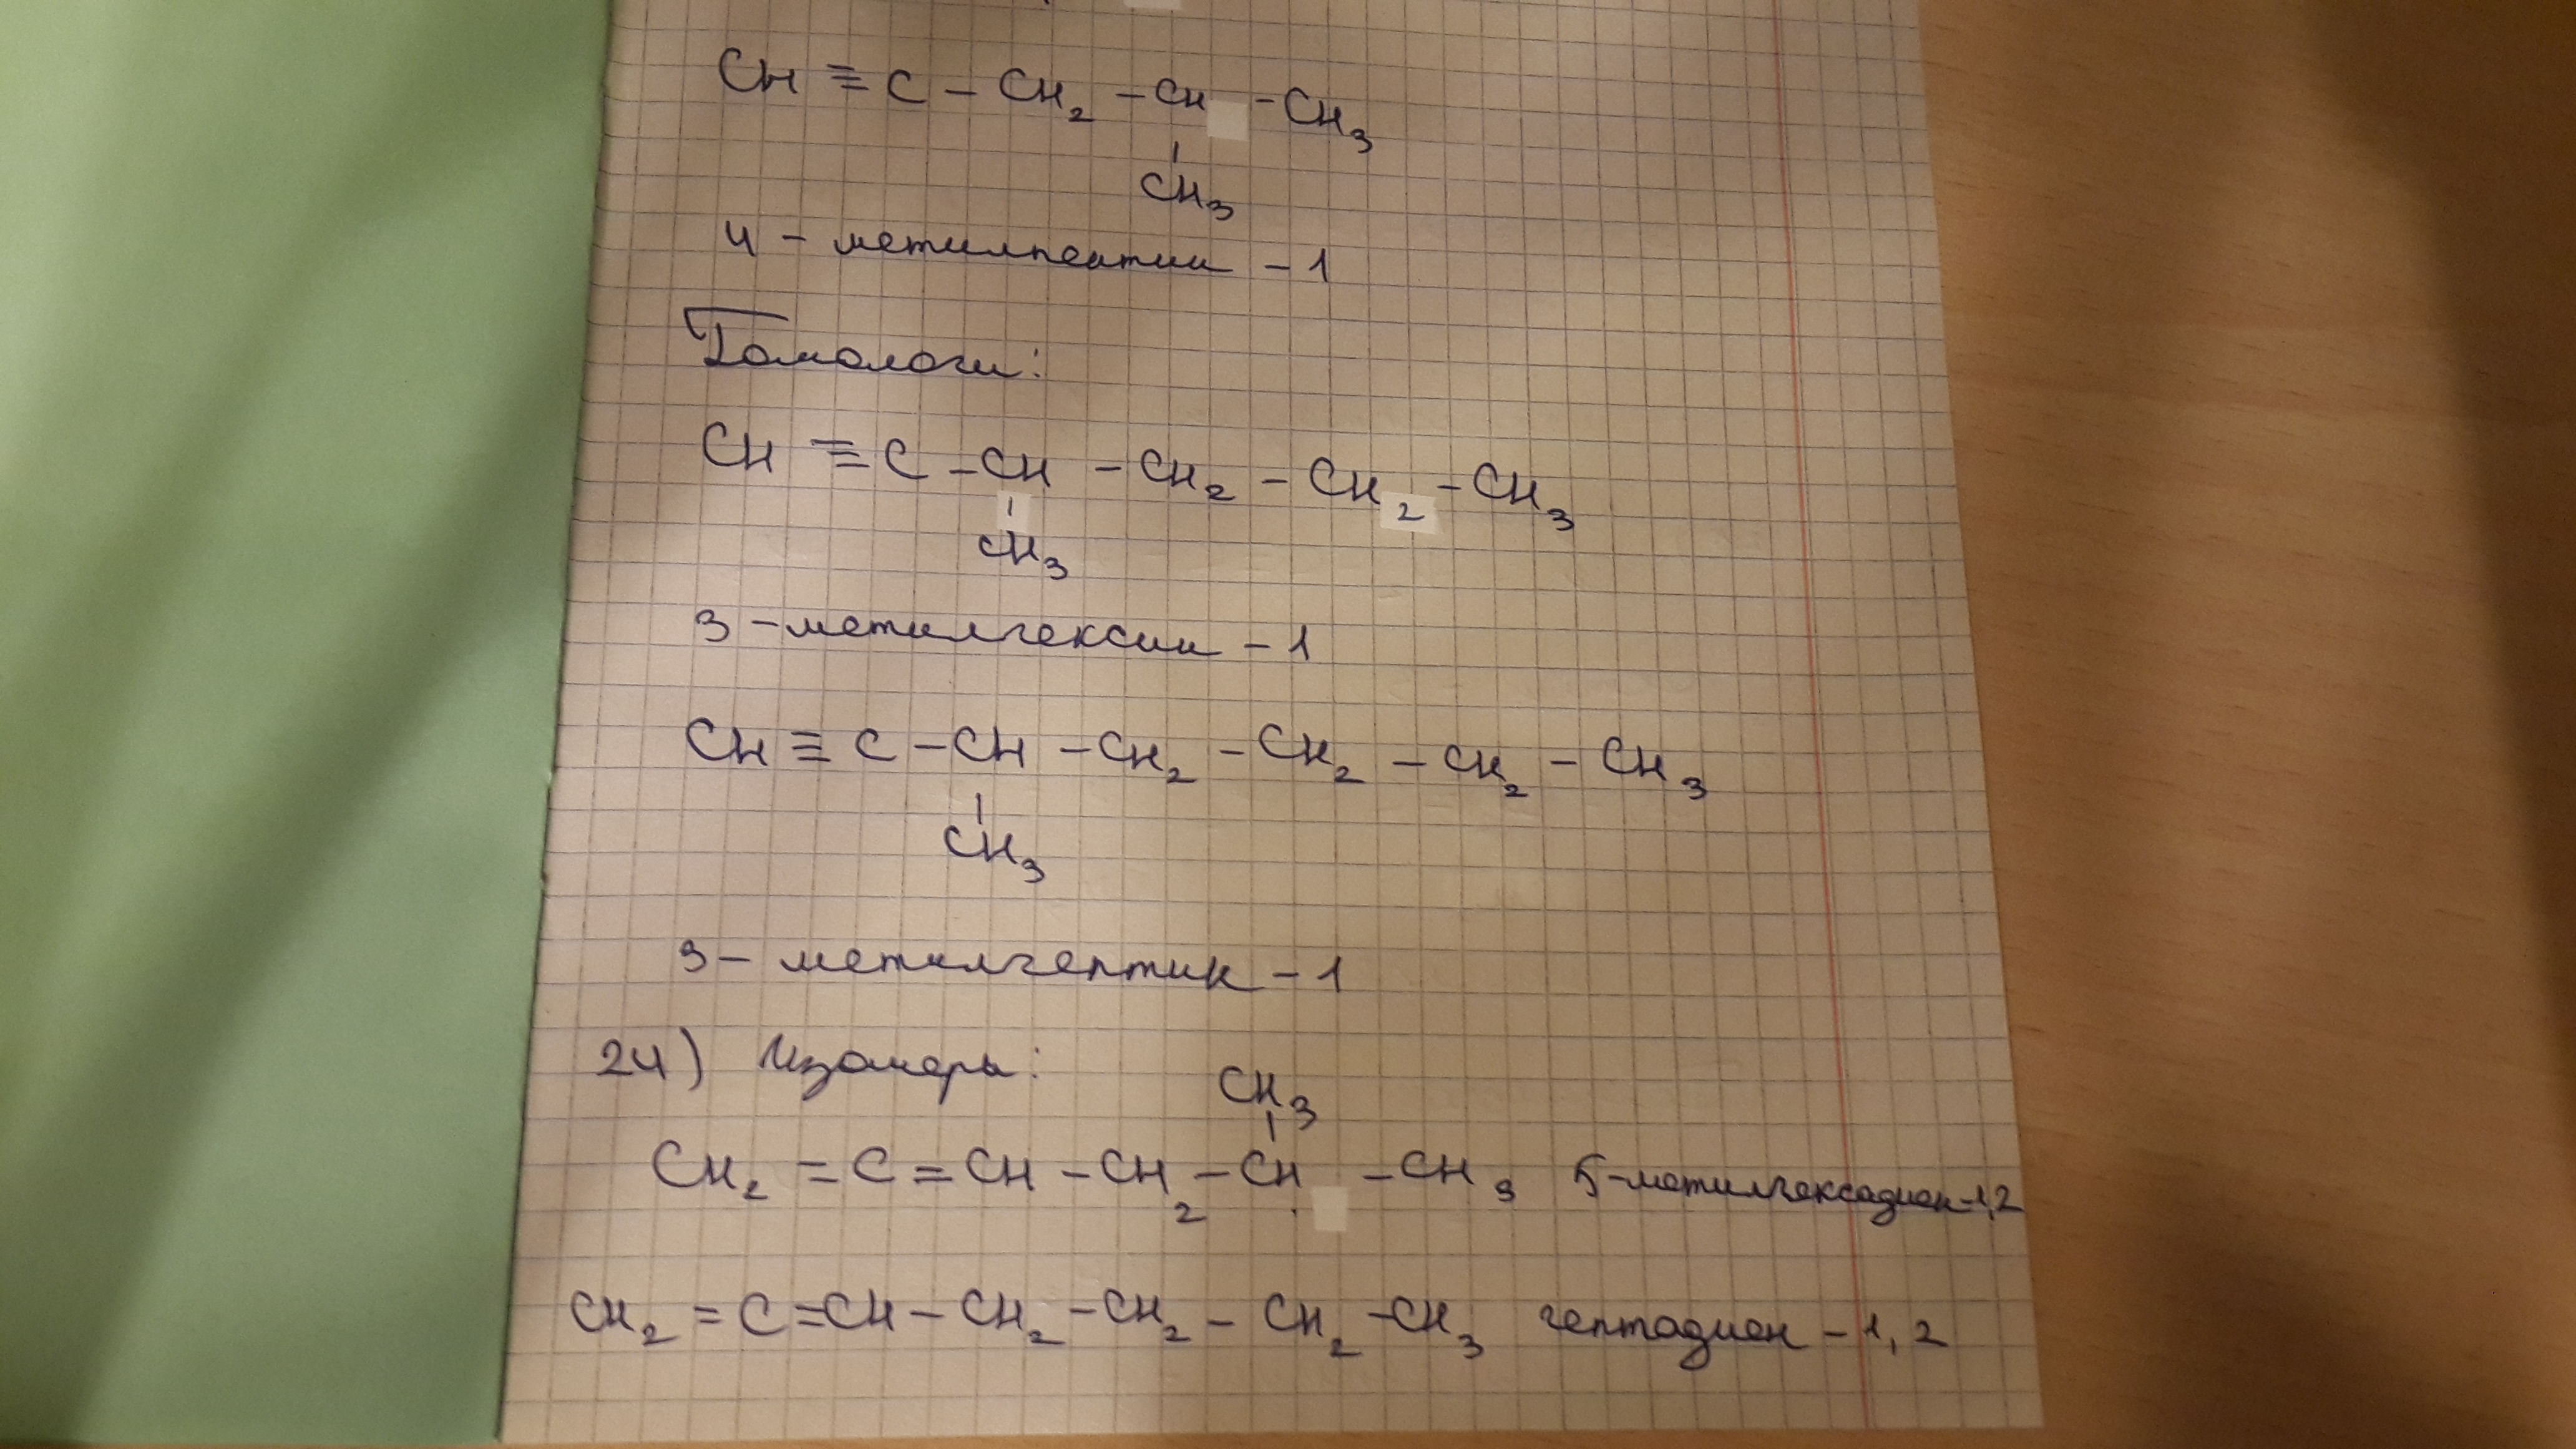 CH ≡ C – CH₂ – CH – CH₃
CH₃
4 – метилпентин – 1
Гомологи:
CH ≡ C – CH – CH₂ – CH₂ – CH₃
CH₃
3 – метилгексин – 1
CH ≡ C – CH – CH₂ – CH₂ – CH₂ – CH₃
CH₃
3 – метилгептин – 1
24) Изомеры:
CH₃
CH₂ = C = CH – CH₂ – CH – CH₃ 5-метилгексадиен-1,2
CH₂ = C = CH – CH₂ – CH₂ – CH₂ – CH₃ гептадиен – 1, 2